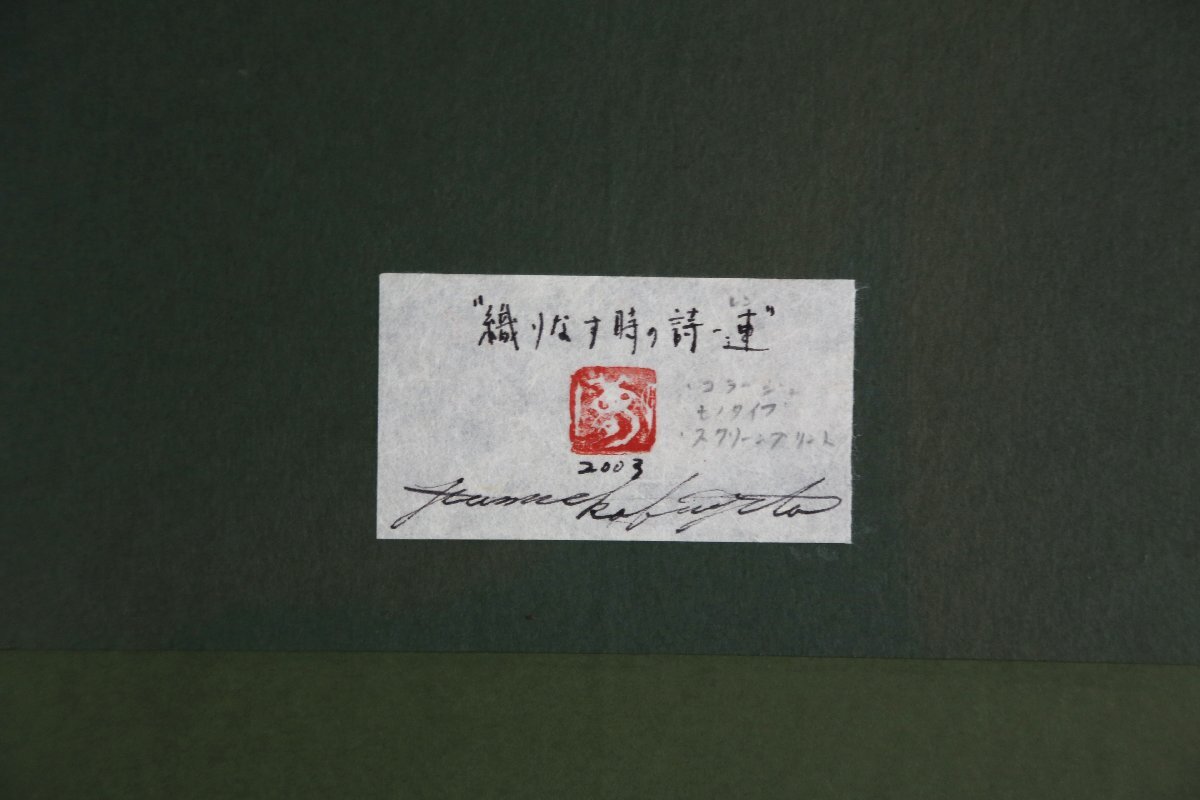 "織りなす時の詩-連"
・コラージュ
モノタイプ
・スクリーンプリント
2003